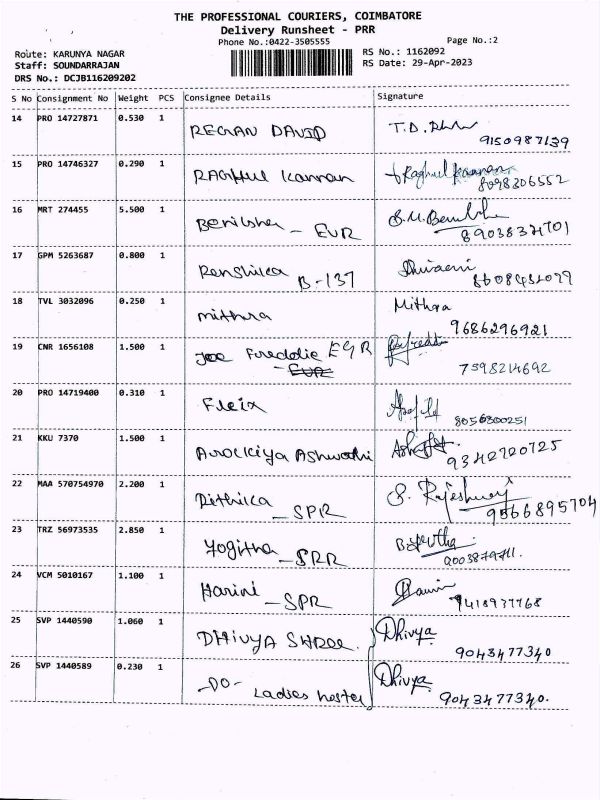 THE PROFESSIONAL COURIERS, COIMBATORE
Delivery Runsheet - PRR
Phone No.:0422-3505555 Page No.:2
Route: KARUNYA NAGAR RS No.: 1162092
Staff: SOUNDARRAJAN RS Date: 29-Apr-2023
DRS No.: DCJB116209202
S No Consignment No Weight PCS Consignee Details Signature
14 PRO 14727871 0.530 1 REGAN DAVID T.D. 9150987139
15 PRO 14746327 0.290 1 RAGHUL Kannan Raghul Kannan 8098306552
16 MRT 274455 5.500 1 Benilsha - EUR
17 GPM 5263687 0.800 1 Renshika B-137
18 TVL 3032096 0.250 1 mithra Mithra 9686296921
19 CNR 1656108 1.500 1 Joe Freddie EGR 7598214692
- EUR
20 PRO 14719400 0.310 1 8056300251
21 KKU 7370 1.500 1 Arockiya Ashwathi 9342720725
22 MAA 570754970 2.200 1 Rithika - SPR S. Rajeshwari 9566895704
23 TRZ 56973535 2.850 1 Yogitha - SRR
24 VCM 5010167 1.100 1 Harini - SPR 9418937768
25 SVP 1440590 1.060 1 DHIVYA SHREE Dhivya 9043477340
26 SVP 1440589 0.230 1 -DO- Ladies hostel Dhivya 9043477340.